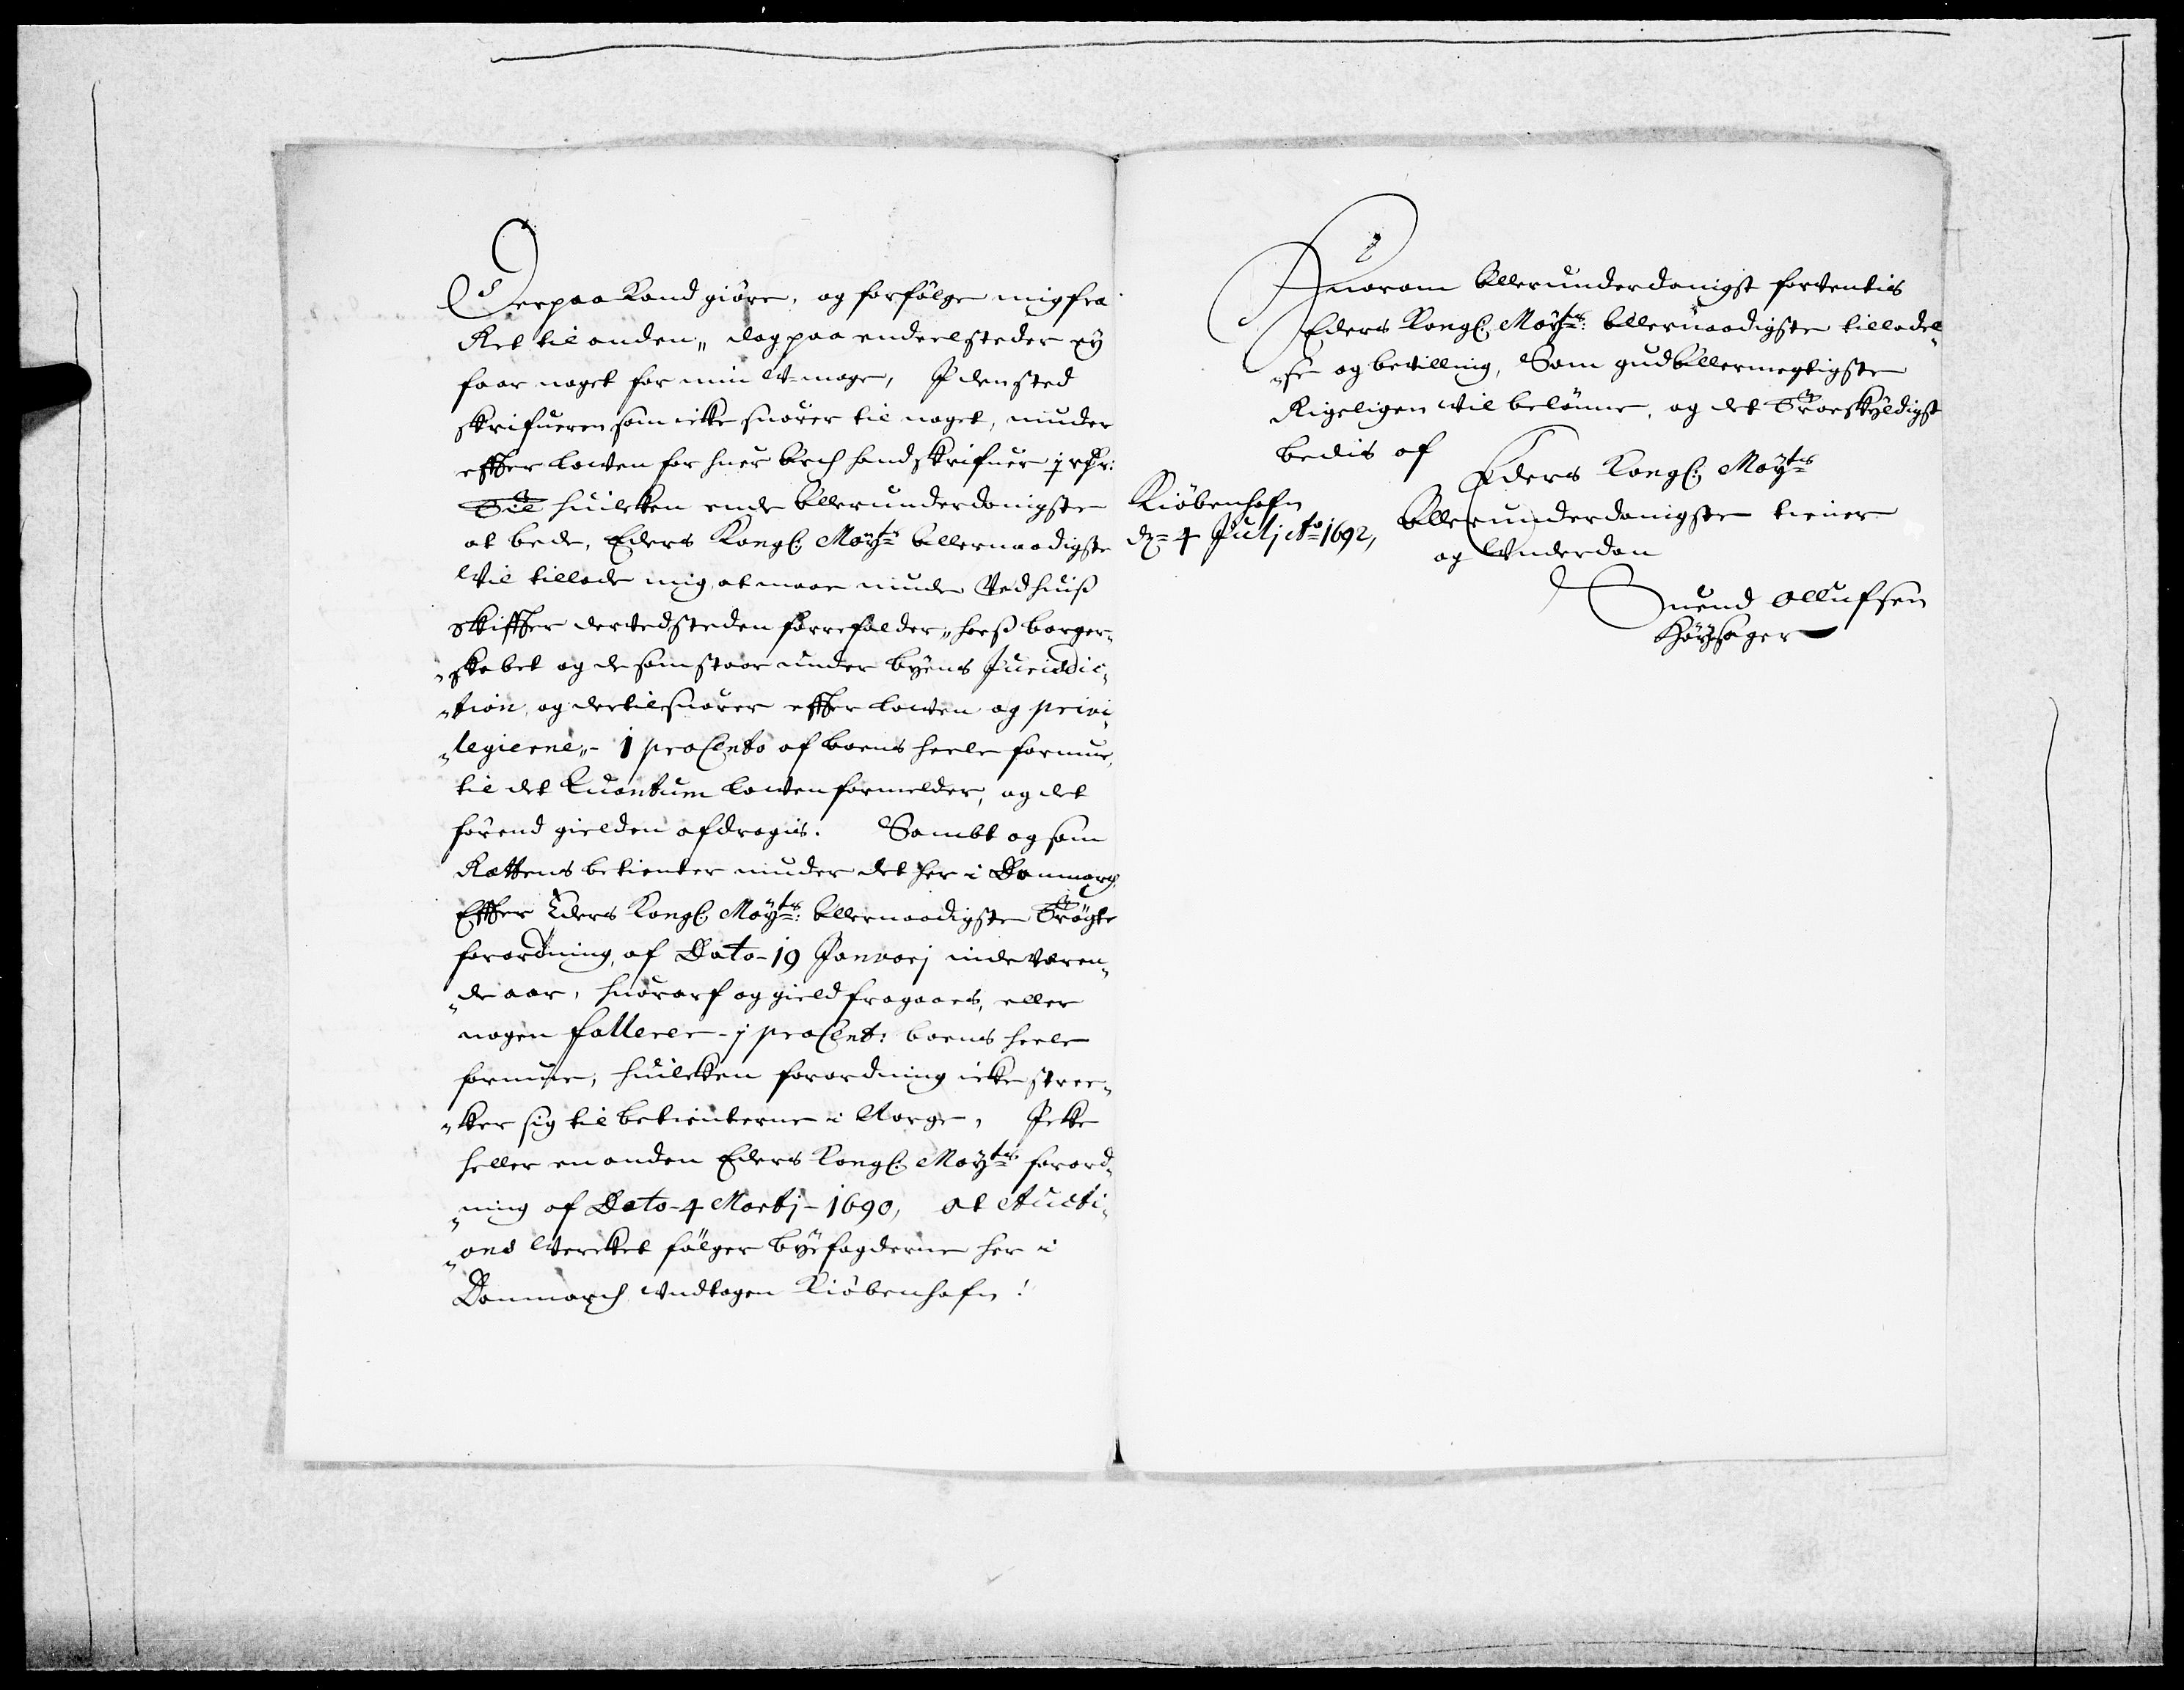 Derpaa Kand giöre, og forfölge mig fra
Ret til anden,, dog paa endeel steder ey
faar noget for min W-mage, I den sted
skrifueren som icke suorer til noget, nyder
effter lowen for huer Arch hand skrifuer j rdr:
Til huilcken ende Allerunderdanigste
at bede, Eders Kongl: Mayts Allernaadigste
Wil tillade mig, at maae nyde Ved huiss
Skiffter der ved steden forrefalder,, hoess borger-
-skabet og de som staar under byens Juridic-
-tion, og der til suorer effter lowen og privi-
-legierne,,- 1 proCento af boens heele formue,
til det Quantum lowen formelder, og det
forend gielden afdragis. Sambt og som
Rættens betienter nyder det her i Danmarch
Effter Eders Kongl: Mayts: Allernaadigste Trögte
forordning, af Dato- 19 Januarj inde væren-
-de aar, huor arf og gield fragaaes, eller
nogen fallerer - j proCent: boens heele
formue, huilcken forordning icke stræc-
-ker sig til betienterne i Norge, Icke
heller en anden Eders Kongl: Mayts forord-
-ning af Dato- 4 Martj- 1690, at Aucti-
-ons Wercket fölger byefogderne her i
Danmarch undtagen Kiöbenhafn!
Huorom Allerunderdanigst forventis
Eders Kongl: Mayts: Allernaadigste tilladel-
-se og bevilling, Som gud Allermegtigste
Rigeligen Vil belönne, og det Troeskyldigst
bedis af
Eders Kongl: Mayts
Kiöbenhafn
Allerunderdanigste tiener
dn 4 Julj Ao 1692,
og Vnderdan
Suend Ollufsen
Höysager